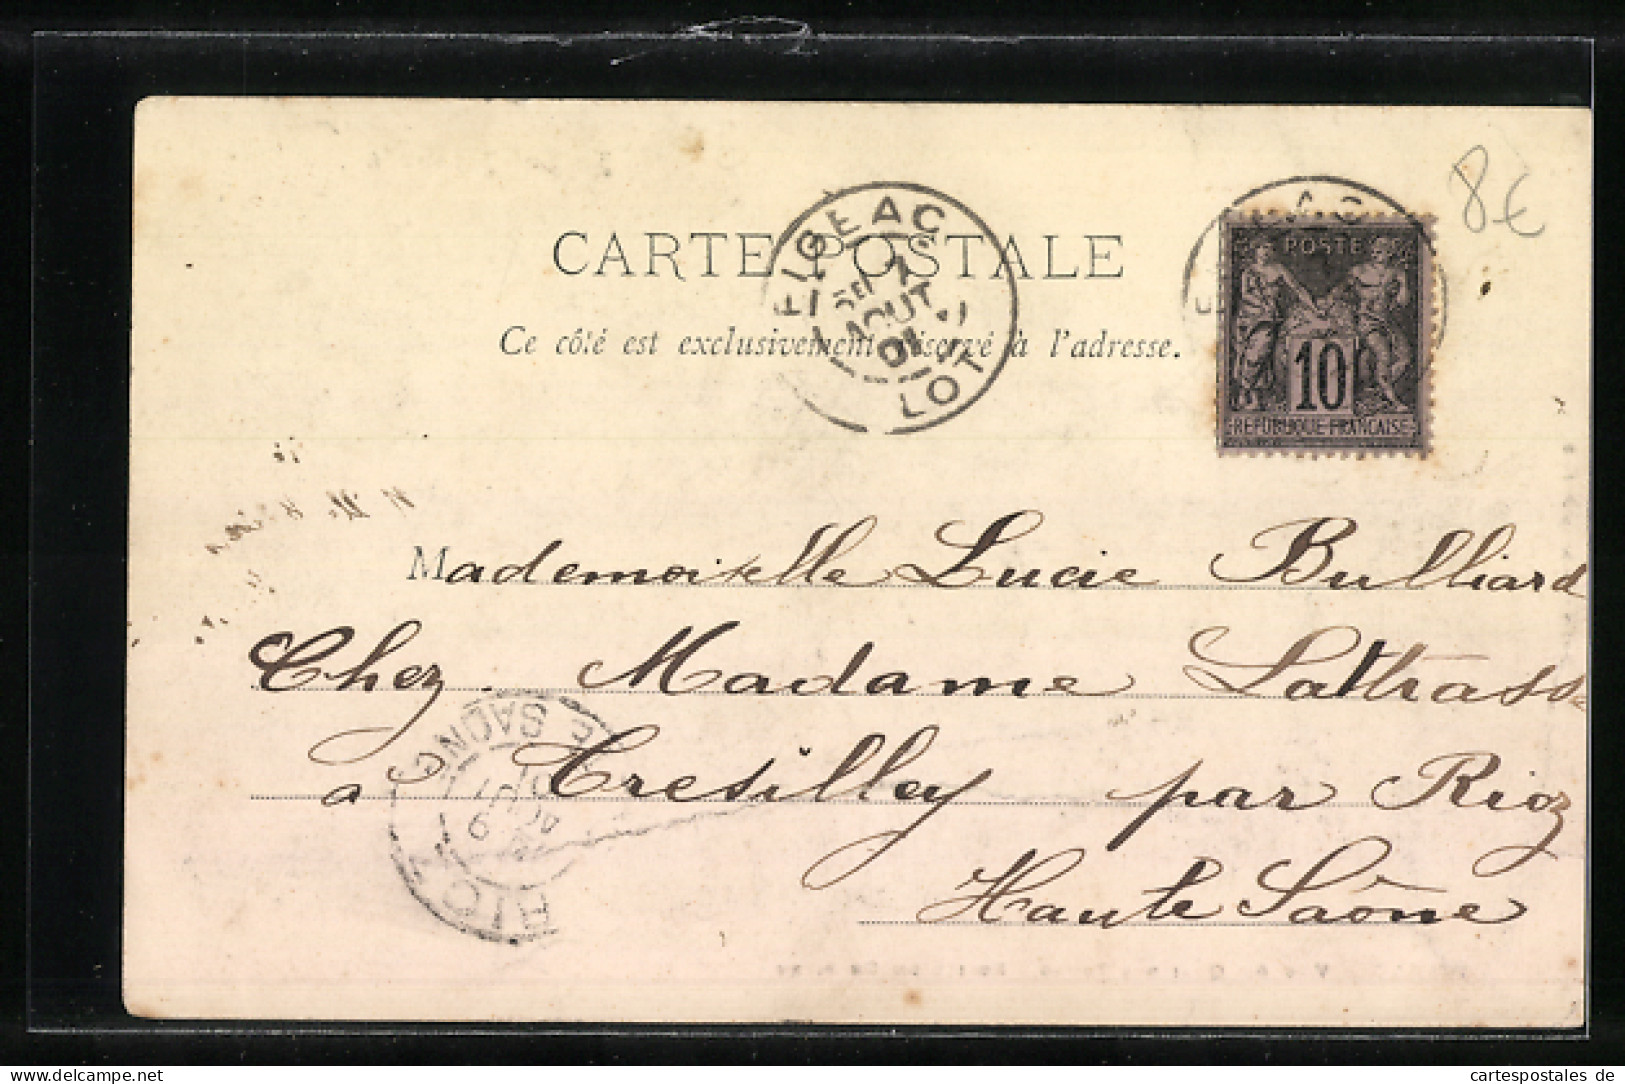 8€
CARTE POSTALE
Ce côté est exclusivement réservé à l'adresse.
FIGEAC
7
AOUT
01
LOT
POSTE
10
REPUBLIQUE FRANCAISE
Mademoiselle Lucie Bulliard
Chez Madame Lattrasse
à Cresilley par Rioz
Haute Saône
RIOZ
9
AOUT
01
E SAONE
cartespostales de